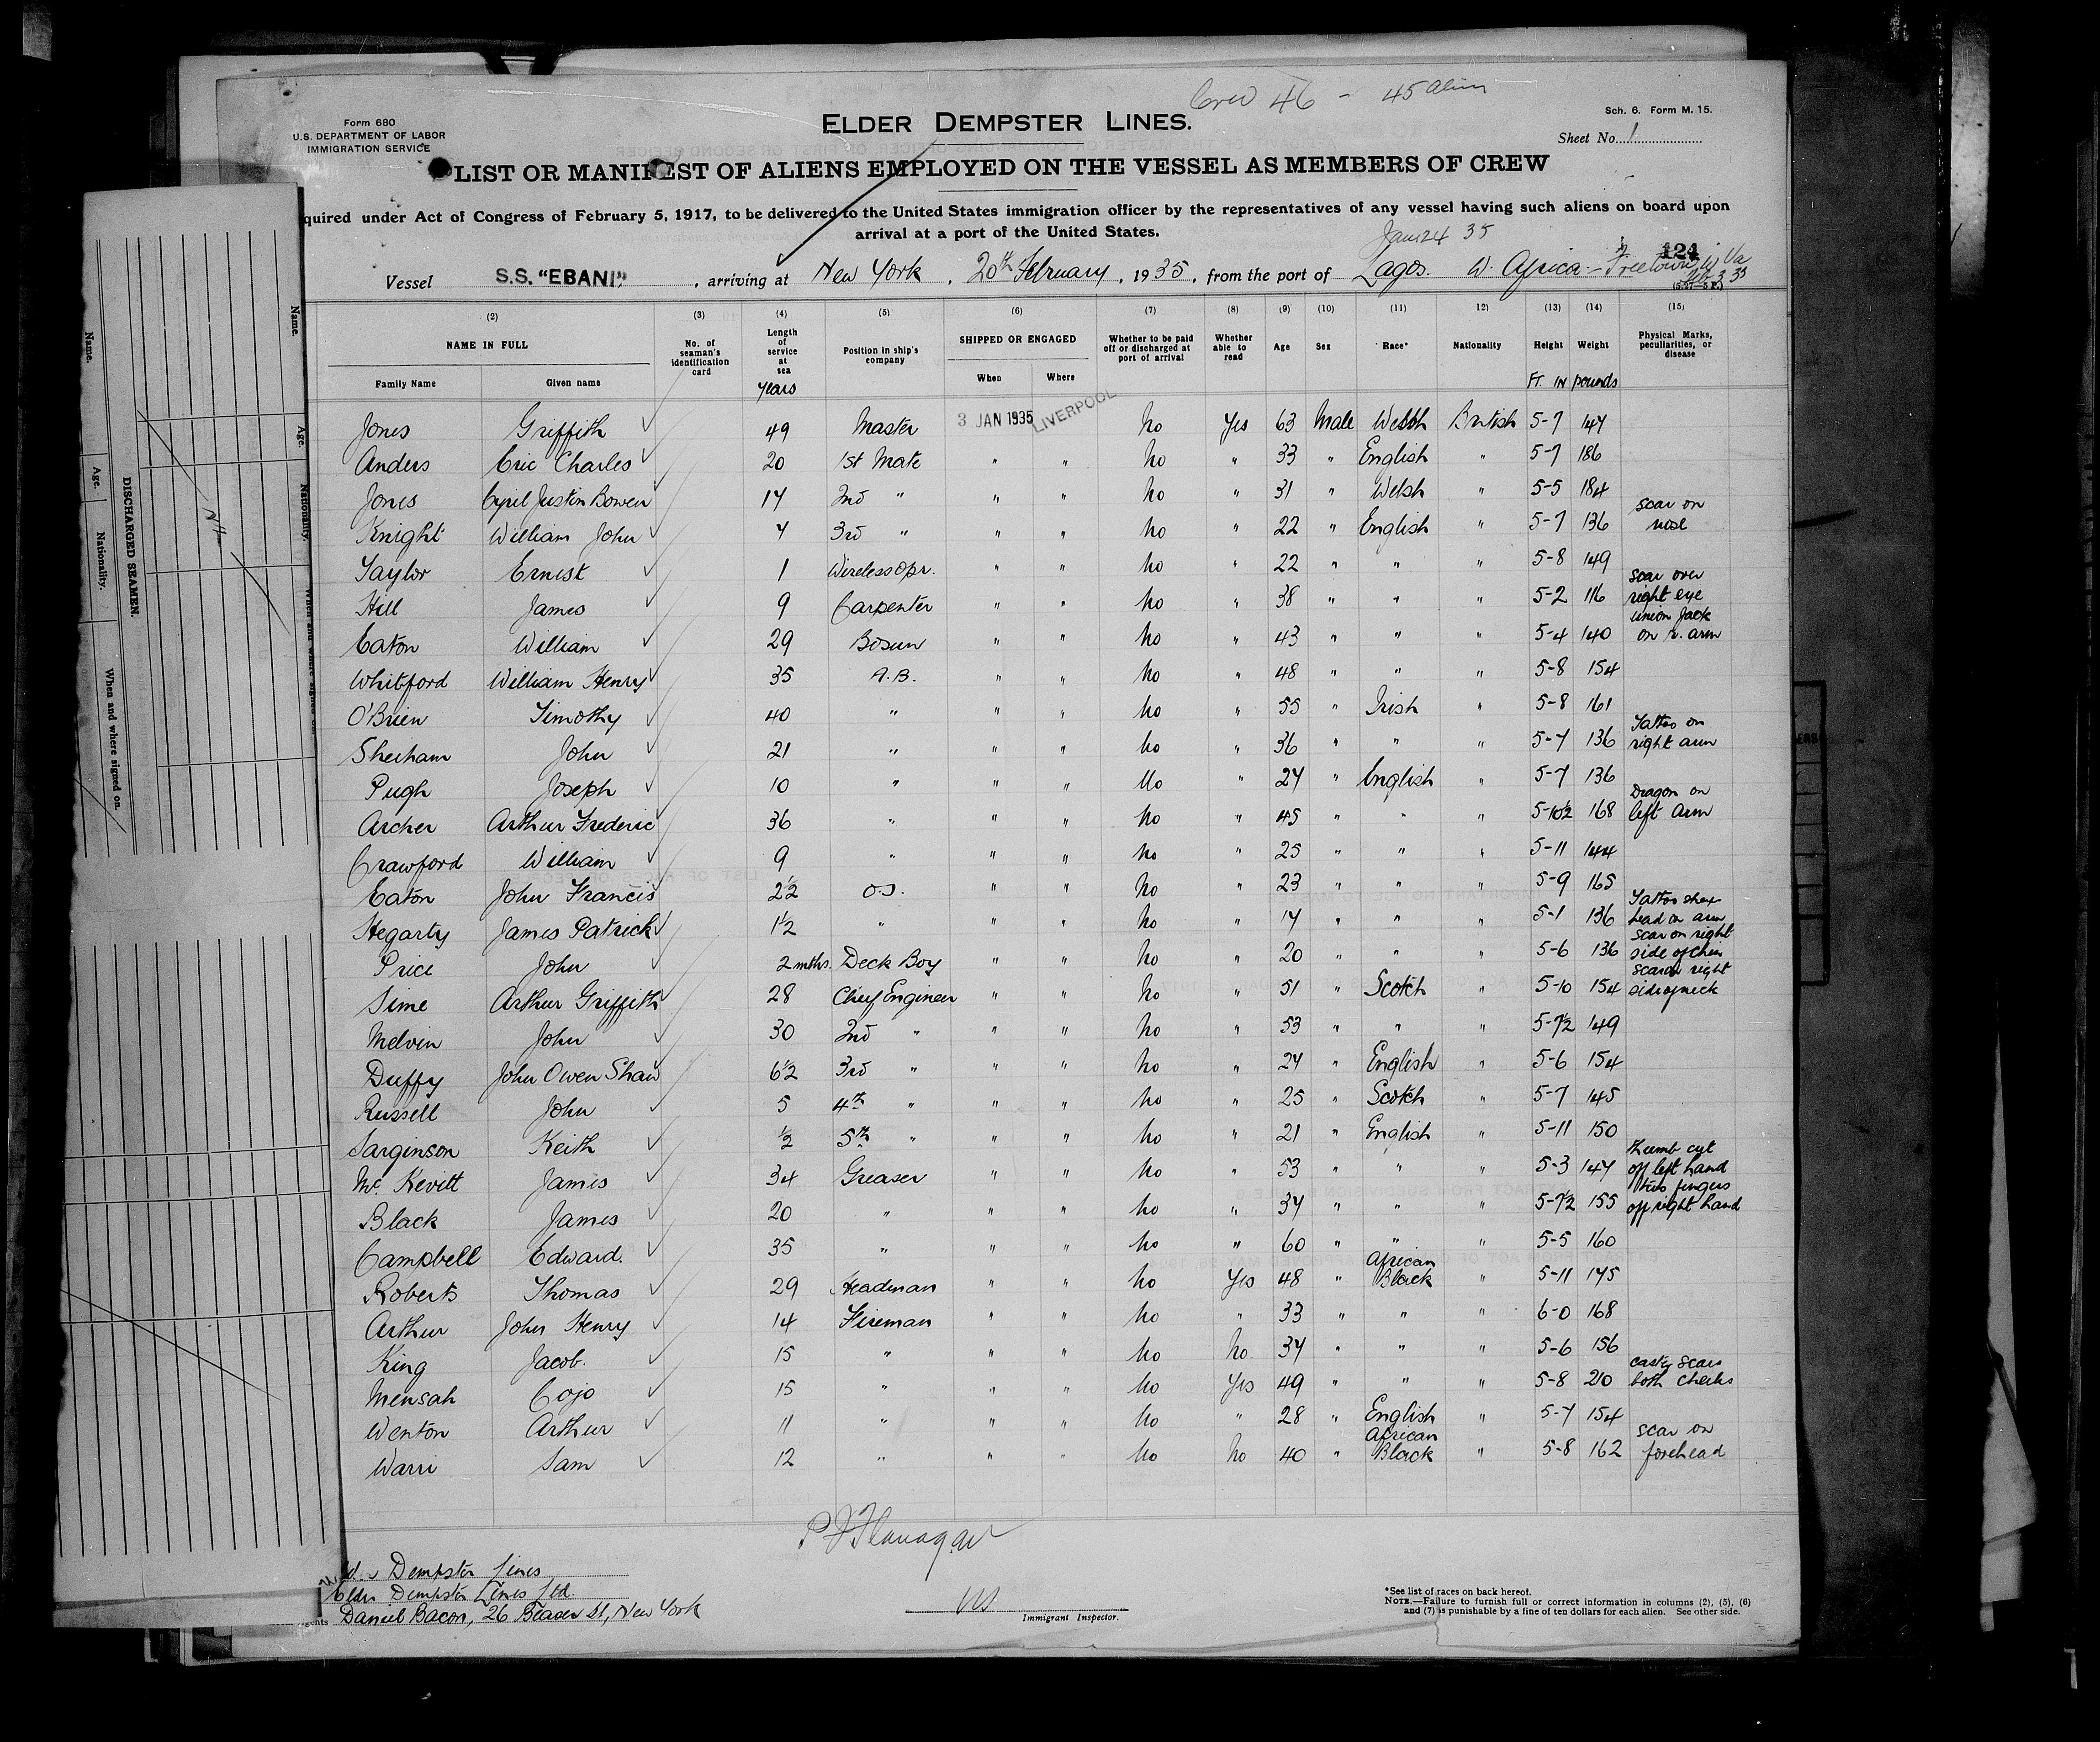 Crew 46 - 45 alien
Form 680
U.S. DEPARTMENT OF LABOR
IMMIGRATION SERVICE
ELDER DEMPSTER LINES.
Sch. 6. Form M. 15.
Sheet No. 1
LIST OR MANIFEST OF ALIENS EMPLOYED ON THE VESSEL AS MEMBERS OF CREW
quired under Act of Congress of February 5, 1917, to be delivered to the United States immigration officer by the representatives of any vessel having such aliens on board upon
arrival at a port of the United States.
Jan 24 35
124
Vessel S.S. "EBANI", arriving at New York, 20th February, 1935, from the port of Lagos. W. Africa - Freetown
(2) (3) (4) (5) (6) (7) (8) (9) (10) (11) 12) (13) (14) (15)
NAME IN FULL
Family Name Given name
No. of seaman's identification card
Length of service at sea
Years
Position in ship's company
SHIPPED OR ENGAGED
When Where
Whether to be paid off or discharged at port of arrival
Whether able to read
Age
Sex
Race*
Nationality
Height
Ft. IN
Weight
pounds
Physical Marks, peculiarities, or disease
Jones Griffith 49 Master 3 JAN 1935 LIVERPOOL No Yes 63 Male Welsh British 5-7 147
Anders Eric Charles 20 1st Mate " " No " 33 " English " 5-7 186
Jones Cyril Justin Bowen 17 2nd " " " No " 31 " Welsh " 5-5 184
Knight William John 7 3rd " " " No " 22 " English " 5-7 136 scar on nose
Taylor Ernest 1 Wireless Opr. " " No " 22 " " " 5-8 149
Hill James 9 Carpenter " " No " 38 " " " 5-2 116 scar over right eye
Eaton William 29 Bosun " " No " 43 " " " 5-4 140 union Jack on r. arm
Whitford William Henry 35 A.B. " " No " 48 " " " 5-8 154
O'Brien Timothy 40 " " " No " 55 " Irish " 5-8 161
Sheeham John 21 " " " No " 36 " " " 5-7 136 Tattoo on right arm
Pugh Joseph 10 " " " No " 27 " English " 5-7 136
Archer Arthur Frederic 36 " " " No " 45 " " " 5-10½ 168 Dragon on left arm
Crawford William 9 " " " No " 25 " " " 5-11 144
Eaton John Francis 2½ O.S. " " No " 23 " " " 5-9 165
Hegarty James Patrick 1½ " " " No " 17 " " " 5-1 136 Tattoo head on arm
Price John 2 mths. Deck Boy " " No " 20 " " " 5-6 136 scar on right side of chin
Sime Arthur Griffith 28 Chief Engineer " " No " 51 " Scotch " 5-10 154 scar on right side of neck
Melvin John 30 2nd " " " No " 53 " " " 5-7½ 149
Duffy John Owen Shaw 6½ 3rd " " " No " 27 " English " 5-6 154
Russell John 5 4th " " " No " 25 " Scotch " 5-7 145
Sarginson Keith ½ 5th " " " No " 21 " English " 5-11 150
Mc Kevitt James 34 Greaser " " No " 53 " " " 5-3 147 Thumb cut off left hand
Black James 20 " " " No " 37 " " " 5-7½ 155 two fingers off right hand
Campbell Edward. 35 " " " No " 60 " " " 5-5 160
Roberts Thomas 29 Headman " " No Yes 48 " African Black " 5-11 175
Arthur John Henry 14 Fireman " " No " 33 " " " 6-0 168
King Jacob. 15 " " " No No 37 " " " 5-6 156
Mensah Cojo 15 " " " No Yes 49 " " " 5-8 210 cast scars both cheeks
Wenton Arthur 11 " " " No " 28 " English " 5-7 154
Warri Sam 12 " " " No No 40 " African Black " 5-8 162 scar on forehead
P J Flanagan
Dempster Lines
Elder Dempster Lines Ltd.
Daniel Bacon, 26 Beaver St, New York
Immigrant Inspector.
*See list of races on back hereof.
NOTE.—Failure to furnish full or correct information in columns (2), (5), (6)
and (7) is punishable by a fine of ten dollars for each alien. See other side.
DISCHARGED SEAMEN.
Name. Age. Nationality. When and where signed on.
Name. Age. Nationality.